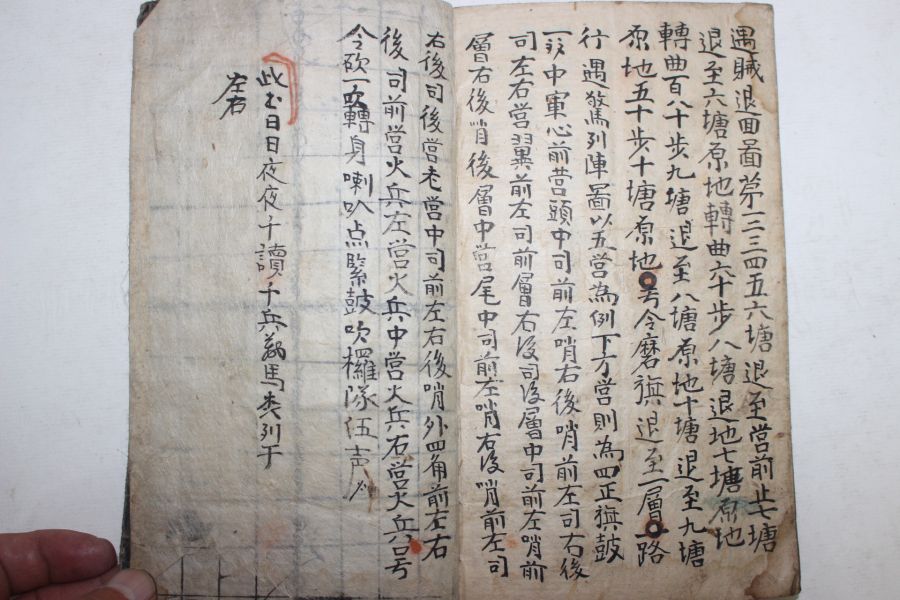 遇賊退回啚苐一二三四五六塘退至営前止七塘
退至六塘原地轉曲六十步八塘退地七塘原地
轉曲百八十步九塘退至八塘原地十塘退至九塘
原地五十步十塘原地号令磨旗退至一層一路
行遇敬馬列陣啚以五营為例下方营則為四正旗鼓
一路中軍心前营頭中司前左哨右後哨前左司右後
司左右营翼前左司前層右後司後層中司前左哨前
層右後哨後層中营尾中司前左哨右後哨前左司
右後司後营老营中司前左右後哨外四角前左右
後司前营火兵左营火兵中营火兵右营火兵号
令砍一吹轉身喇叭点緊鼓吹囉隊伍声
此玄日日夜夜千讀千兵萬馬类列于
左右